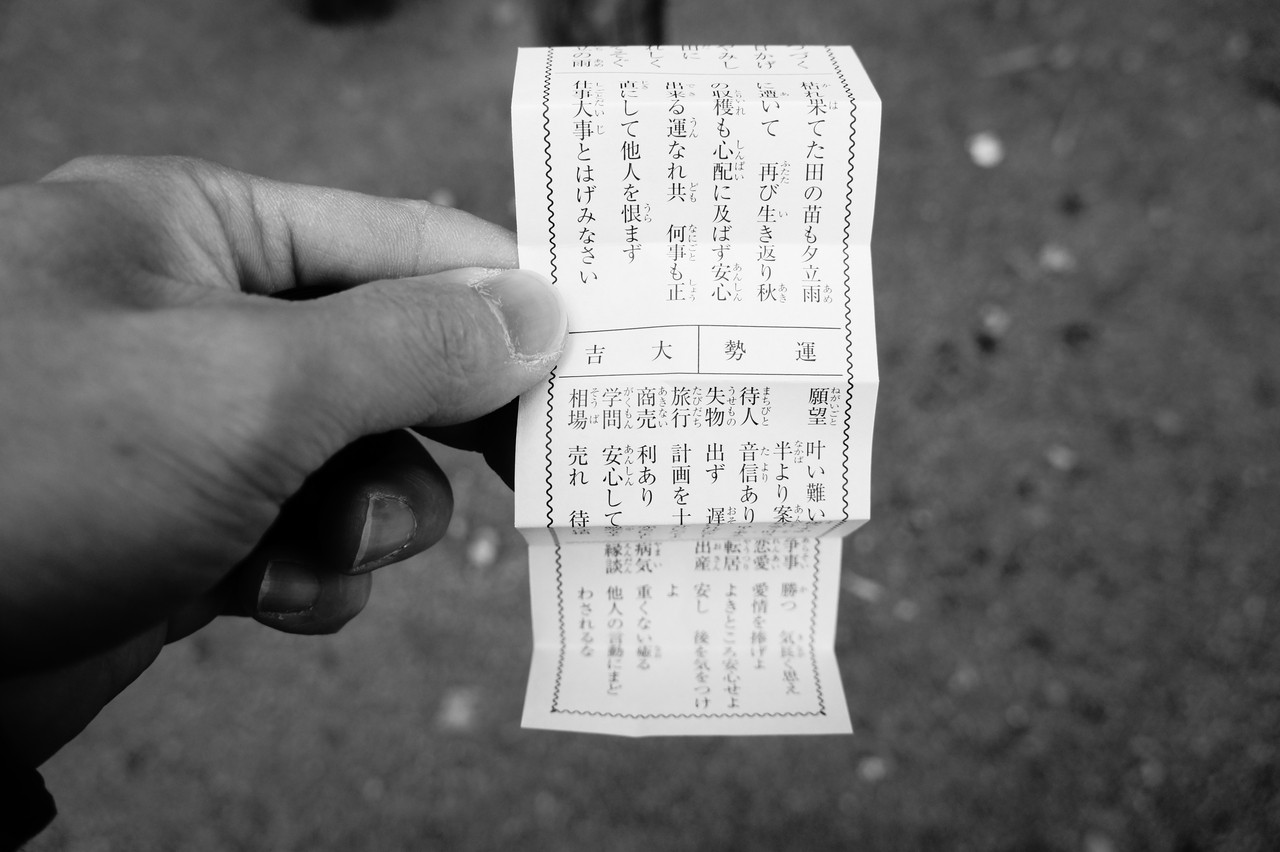 づく
かげ
みし
に
しく
ぐ
の雨
枯れ果てた田の苗も夕立雨
に遭いて　再び生き返り秋
の収穫も心配に及ばず安心
出来る運なれ共　何事も正
直にして他人を恨まず
仕事大事とはげみなさい
運勢　大吉
願望　叶い難い
半より案
待人　音信あり
失物　出ず　遅
旅行　計画を十
商売　利あり
学問　安心して
相場　売れ　待
争事　勝つ　気長く思え
恋愛　愛情を捧げよ
転居　よきところ安心せよ
出産　安し　後を気をつけ
よ
病気　重くない癒る
縁談　他人の言動にまど
わされるな